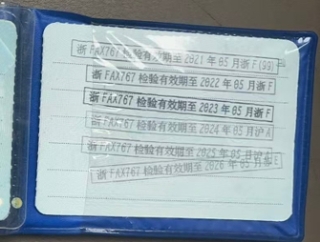 浙 FAX767 检验有效期至 2021 年 05 月浙 F(99)
浙 FAX767 检验有效期至 2022 年 05 月浙 F
浙 FAX767 检验有效期至 2023 年 05 月浙 F
浙 FAX767 检验有效期至 2024 年 05 月沪 A
浙 FAX767 检验有效期至 2025 年 05 月沪
浙 FAX767 检验有效期至 2026 年 05 月